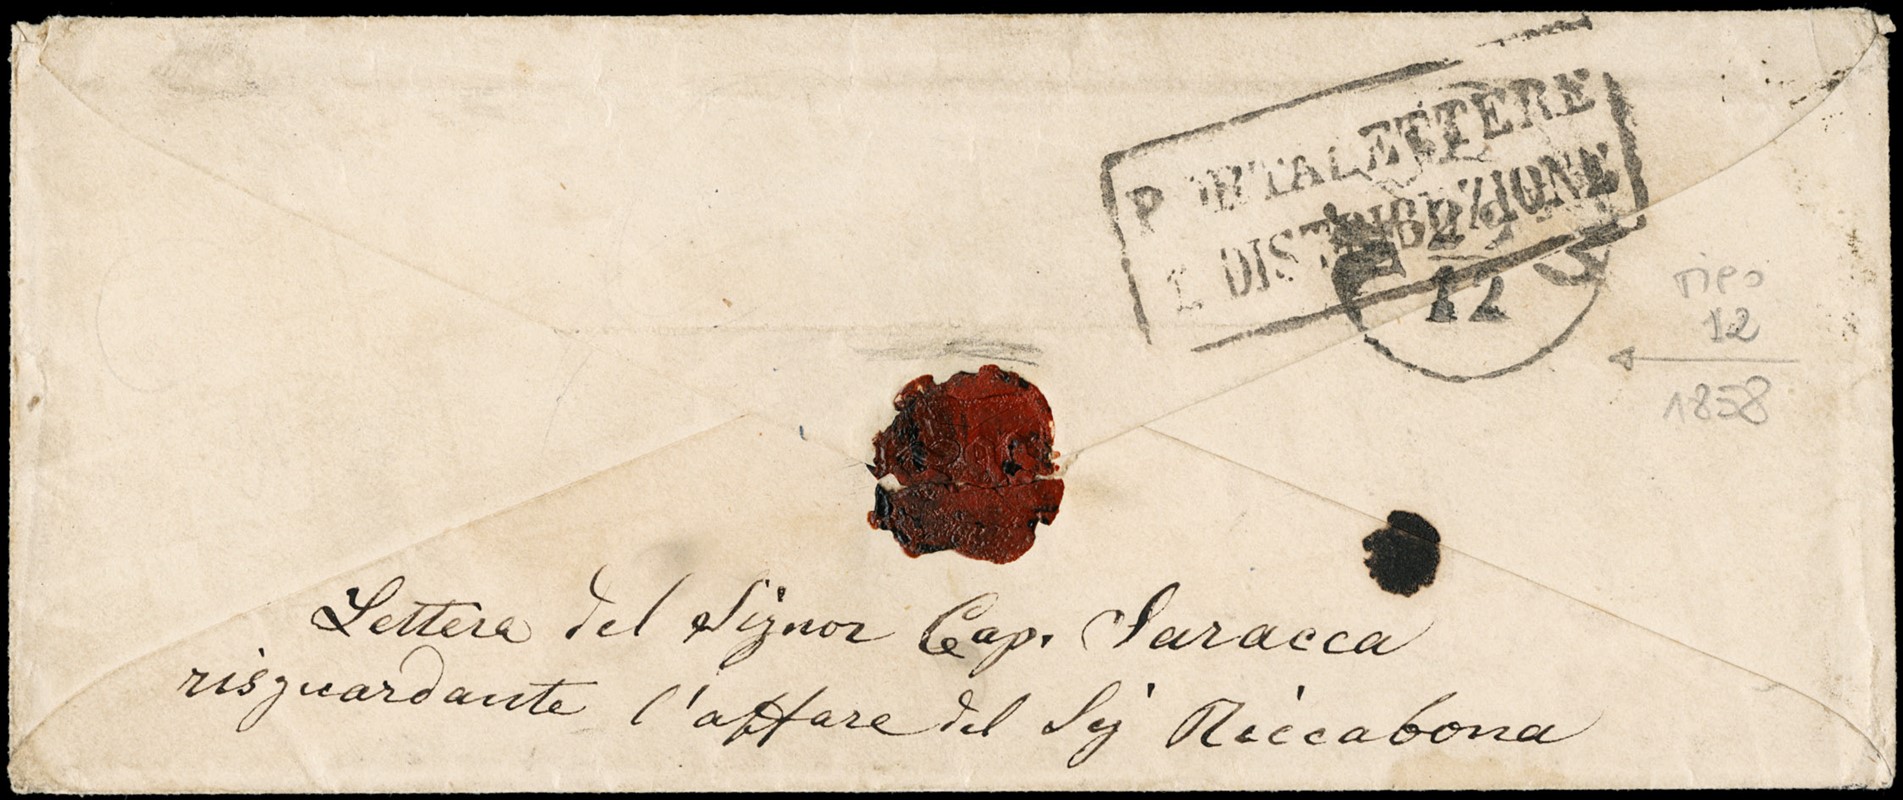 PORTALETTERE
I. DISTRIBUZIONE
12
TIPO
12
1858
Lettera del Signor Cap. Saracca
risguardante l'affare del Sig Riccabona